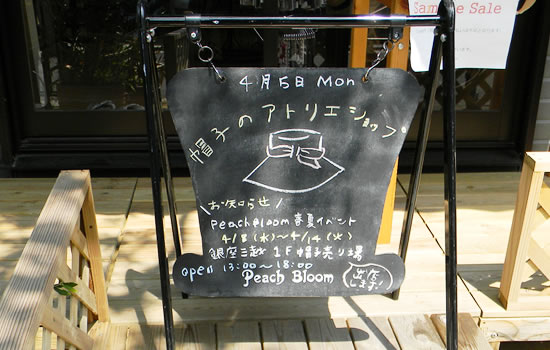 Sample Sale
4月5日 Mon
帽子のアトリエショップ
\お知らせ/
Peach Bloom 春夏イベント
4/8(水)~4/14(火)
銀座三越 1F 帽子売り場
open 13:00~18:00
Peach Bloom
出店します!